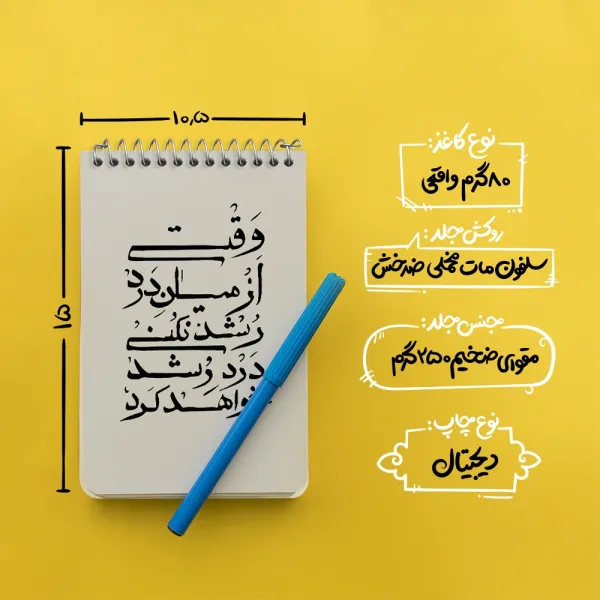 ۱۰,۵
۱۵
وقتی
از میان درد
رشد نکنی
درد رشد
خواهد کرد
نوع کاغذ:
۸۰گرم واقعی
روکش جلد:
سلفون مات مخملی ضدخش
جنس جلد:
مقوای ضخیم ۲۵۰گرم
نوع چاپ:
دیجیتال